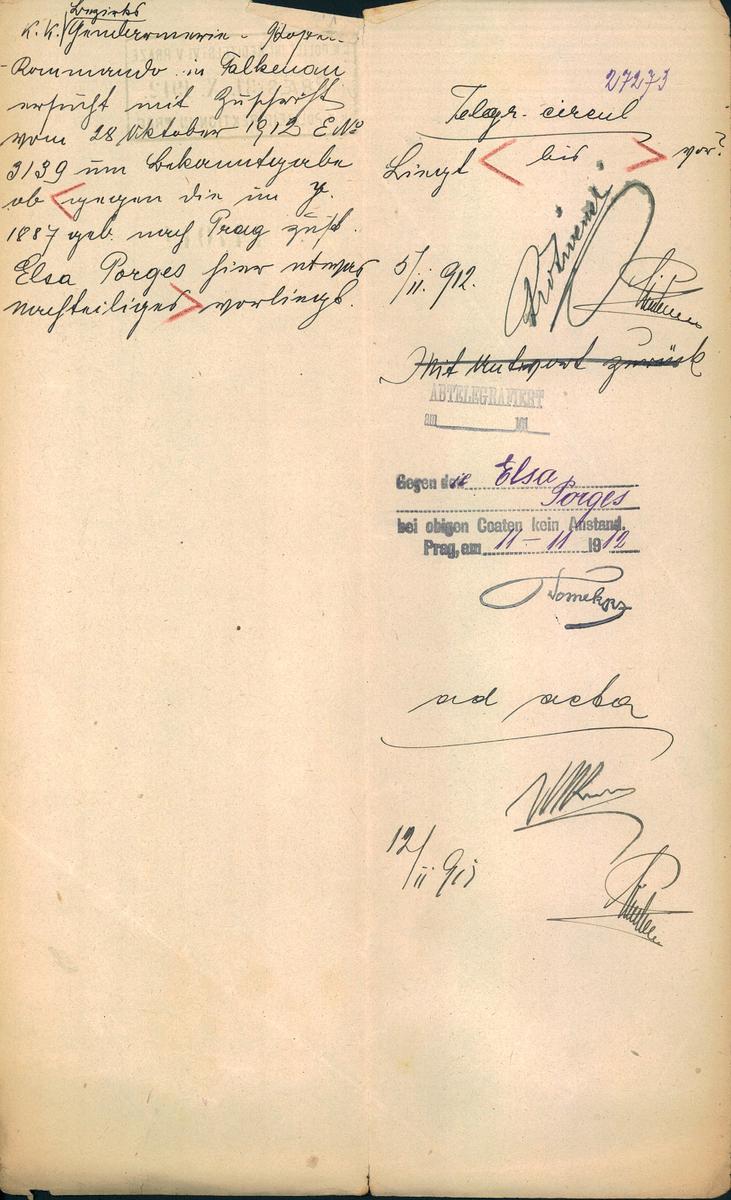 Bezirks
K.K. Gendarmerie-
Kommando in Falkenau
ersucht mit Zuschrift
vom 28 Oktober 1912 E No
3139 um Bekanntgabe
ob < gegen die im J.
1887 geb. nach Prag zust.
Elsa Porges hier etwas
nachteiliges > vorliegt.
27273
Telegr. circul
Liegt < bis > vor?
5/II. 912.
Mit Antwort zurück
ABTELEGRAFIERT
am 191
Gegen die Elsa
Porges
bei obigen Coaten kein Anstand.
Prag, am 11 - 11 1912
ad acta
12/II 912